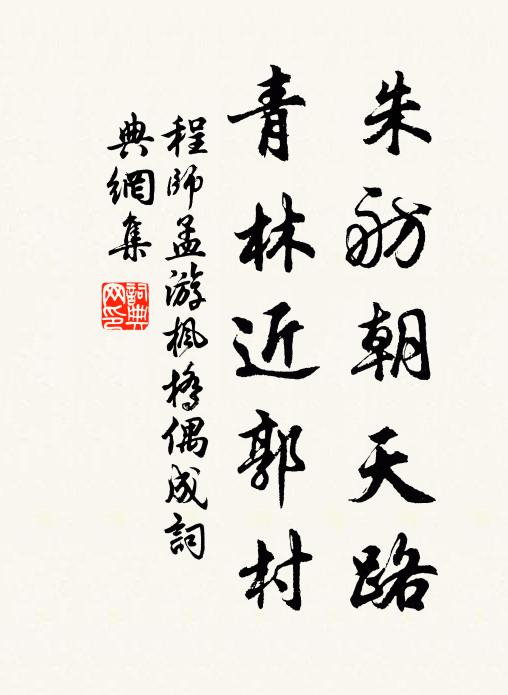 朱舫朝天路
青林近郭村
程師孟游楓橋偶成詞
典網集
詞典
网印